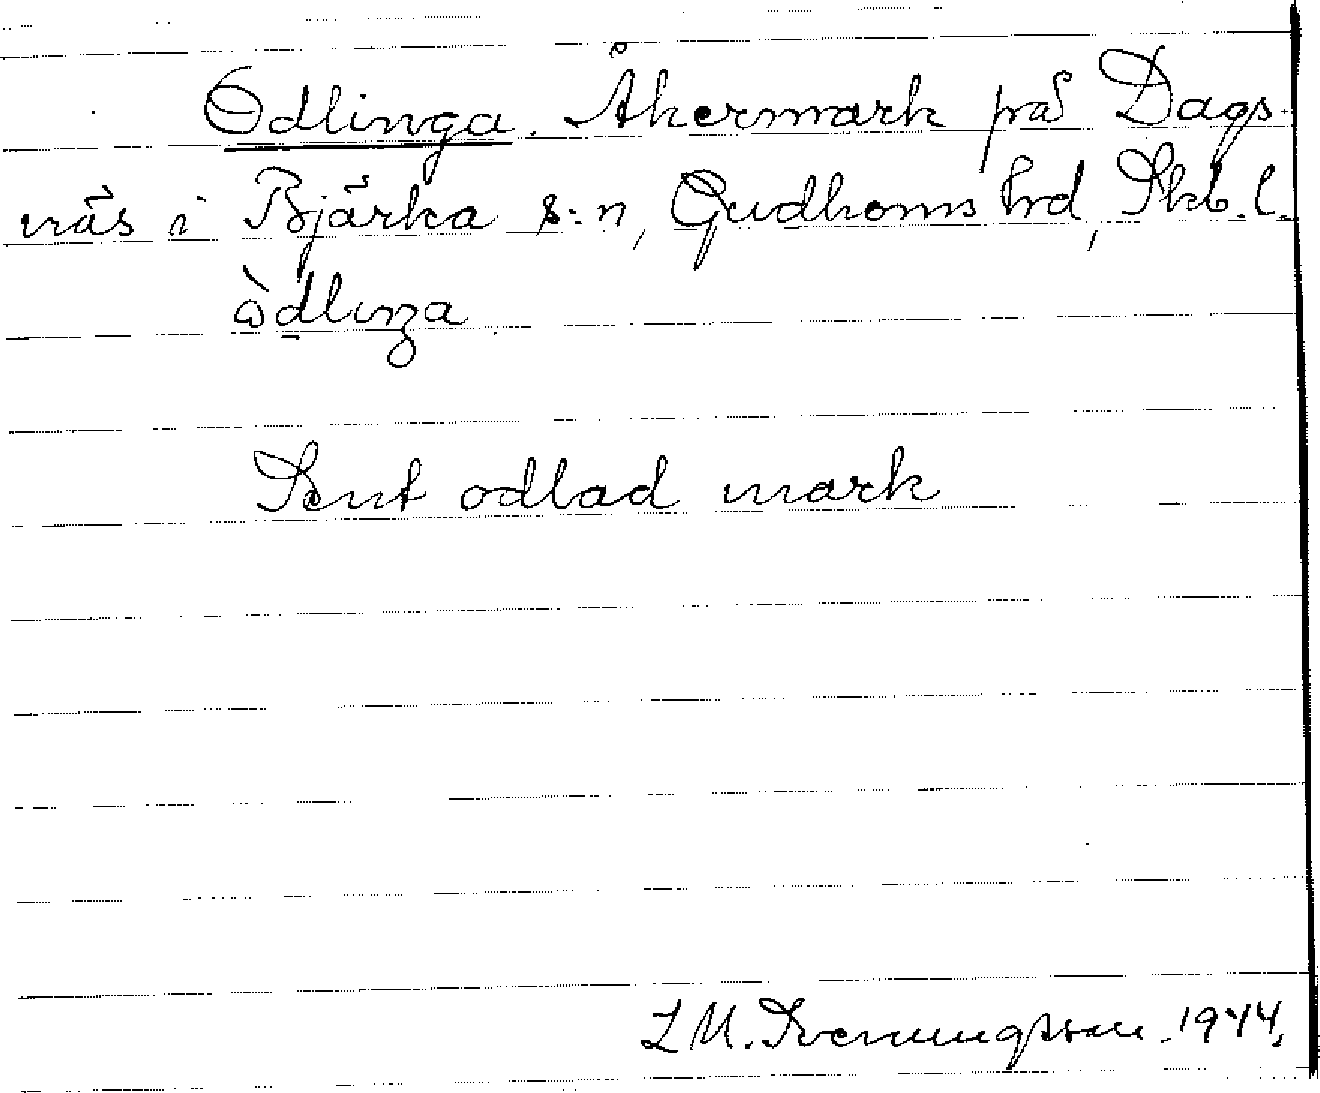 Odlinga. Åkermark på Dags-
näs i Bjärka s:n, Gudhems hrd, Skb. l.
ὼdlinga
Sent odlad mark
L M. Svenungsson. 1944.